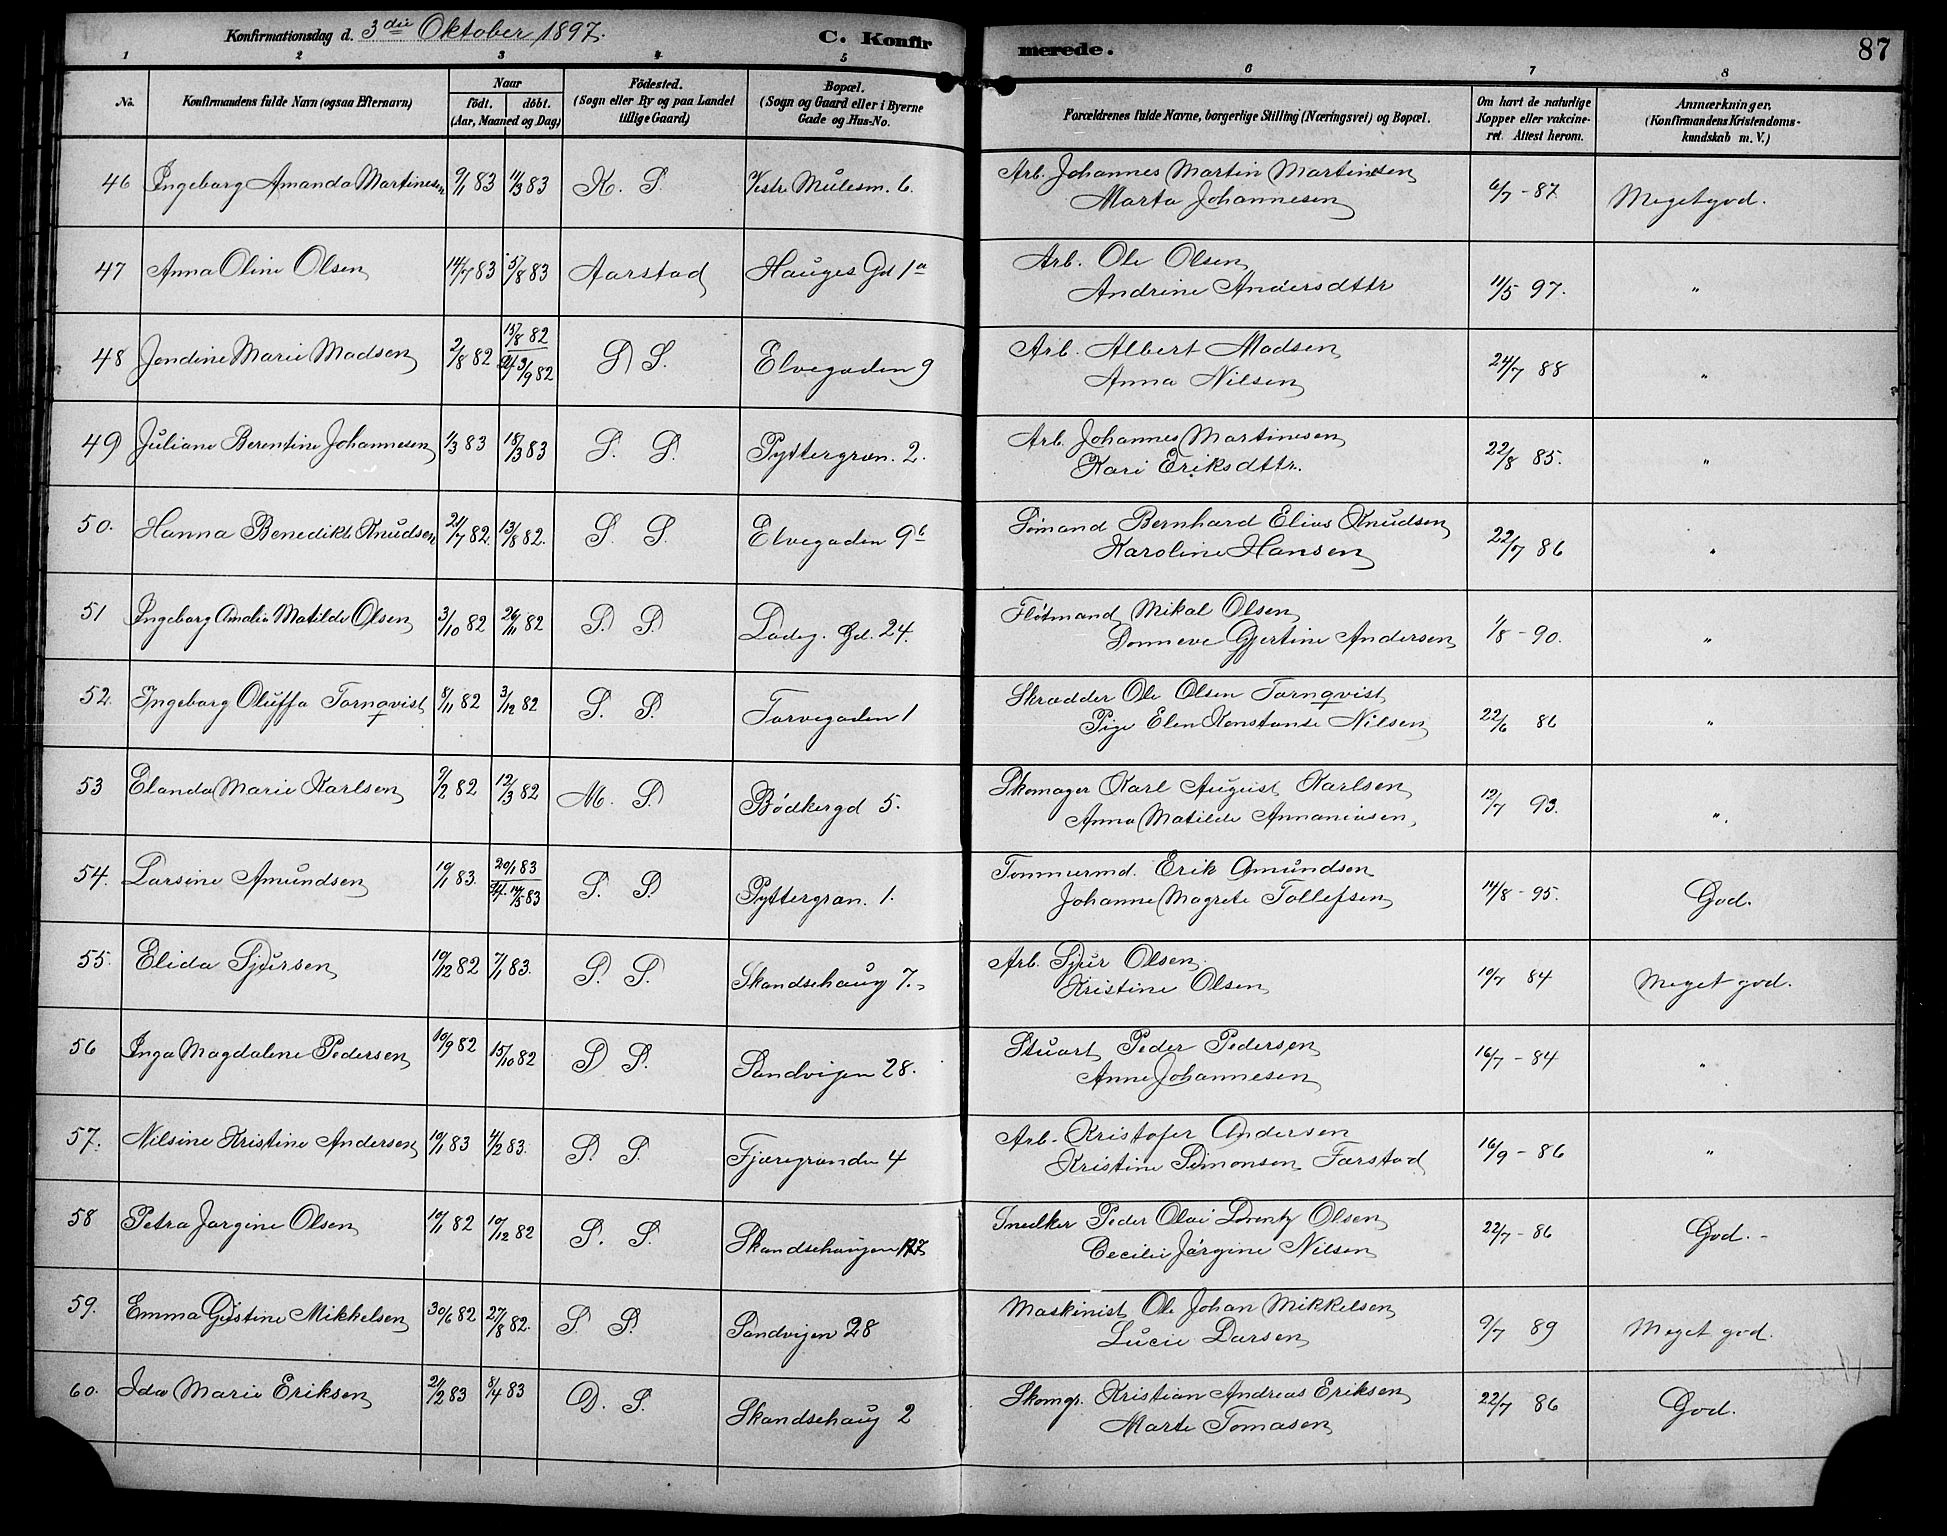 Konfirmationsdag d. 3die Oktober 1897. C. Konfirmerede. 87
1 2 3 4 5 6 7 8
No. Konfirmandens fulde Navn (ogsaa Efternavn) Naar födt. döbt. (Aar, Maaned og Dag) Födested. (Sogn eller By og paa Landet tillige Gaard) Bopæl. (Sogn og Gaard eller i Byerne Gade og Hus-No. Forældrenes fulde Navne, borgerlige Stilling (Næringsvei) og Bopæl. Om havt de naturlige Kopper eller vakcineret. Attest herom. Anmærkninger. (Konfirmandens Kristendomskundskab m. V.)
46 Ingeborg Amanda Martinesen 9/1 83 11/3 83 K. S. Vestr Mulesm. 6. Arb. Johannes Martin Martinesen 6/7 - 87 Meget god.
Marta Johannesen
47 Anna Oline Olsen 14/7 83 5/8 83 Aarstad Hauges Gd 1a Arb. Ole Olsen 11/5 97. "
Andrine Andersdttr
48 Jendine Marie Madsen 2/8 82 15/8 82 3/9 82 D S. Elvegaden 9 Arb. Albert Madsen 24/7 88 "
Anna Nilsen
49 Juliane Berentine Johannesen 1/3 83 18/3 83 S. S. Pyttergran. 2. Arb. Johannes Martinesen 22/8 85. "
Kari Eriksdttr.
50. Hanna Benedikte Knudsen 21/7 82. 13/8 82. S. S. Elvegaden 9b Sömand Bernhard Elias Knudsen 22/7 86 "
Karoline Hansen
51 Ingeborg Amalia Matilde Olsen 3/10 82 26/11 82 S. S. Ladeg. Gd. 24. Flötmand Mikal Olsen 1/8 - 90. "
Sonneve Gjertine Andersen
52. Ingeborg Oluffa Tornqvist 8/11 82 3/12 82 S. S. Torvegaden 1 Skrædder Ole Olsen Tornqvist 22/6 86 "
Pige Elen Konstanse Nilsen
53 Elanda Marie Karlsen 9/2 82 12/3 82 M. S. Bödkergd 5. Skomager Karl August Karlsen 12/7 93. ".
Anna Matilde Annaniasen
54. Larsine Amundsen 10/1 83. 20/1 83 14/5 83 S. S. Pyttergran. 1. Tömmermd. Erik Amundsen 14/8 - 95. God.
Johanne Magrete Tollefsen
55. Elida Sjursen 10/12 82 7/1 83. S. S. Skandsehaug 7. Arb. Sjur Olsen. 10/7 84 Meget god.
Kristine Olsen
56 Inga Magdalene Pedersen 10/9 82 15/10 82 D S. Sandvigen 28. Stuart Peder Pedersen 16/7 - 84 "
Anne Johannesen
57. Nilsine Kristine Andersen 10/1 83 4/2 83. S. S. Fjæregranden 4 Arb. Kristofer Andersen 16/9 - 86 "
Kristine Simonsen Farstad
58 Petra Jørgine Olsen 10/1 82 10/12 82 S. S. Skandsehaugen 177 Snedker Peder Olai Lorentz Olsen 22/7 - 86 God. -
Cecilie Jørgine Nilsen
59. Emma Gustine Mikkelsen 30/6 82 27/8 82. S. S. Sandvigen 28 Maskinist Ole Johan Mikkelsen 9/7 89 Meget god.
Lucie Larsen
60. Ida Marie Eriksen 24/2 83 8/4 83 D. S. Skandsehaug 2 Skomgr. Kristian Andreas Eriksen 22/7 86 God.
Marte Tomasen